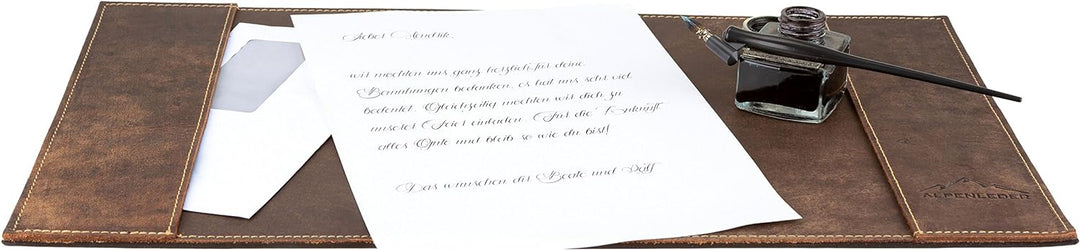 Lieber Hendrik,
wir mochten uns ganz herzlich für deine
Bemühungen bedanken, es hat uns sehr viel
bedeutet. Gleichzeitig mochten wir dich zu
unserer Feier einladen. Für die Zukunft
alles Gute und bleib so wie du bist!
Das wunschen dir Beate und Ralf
ALPENLEDER